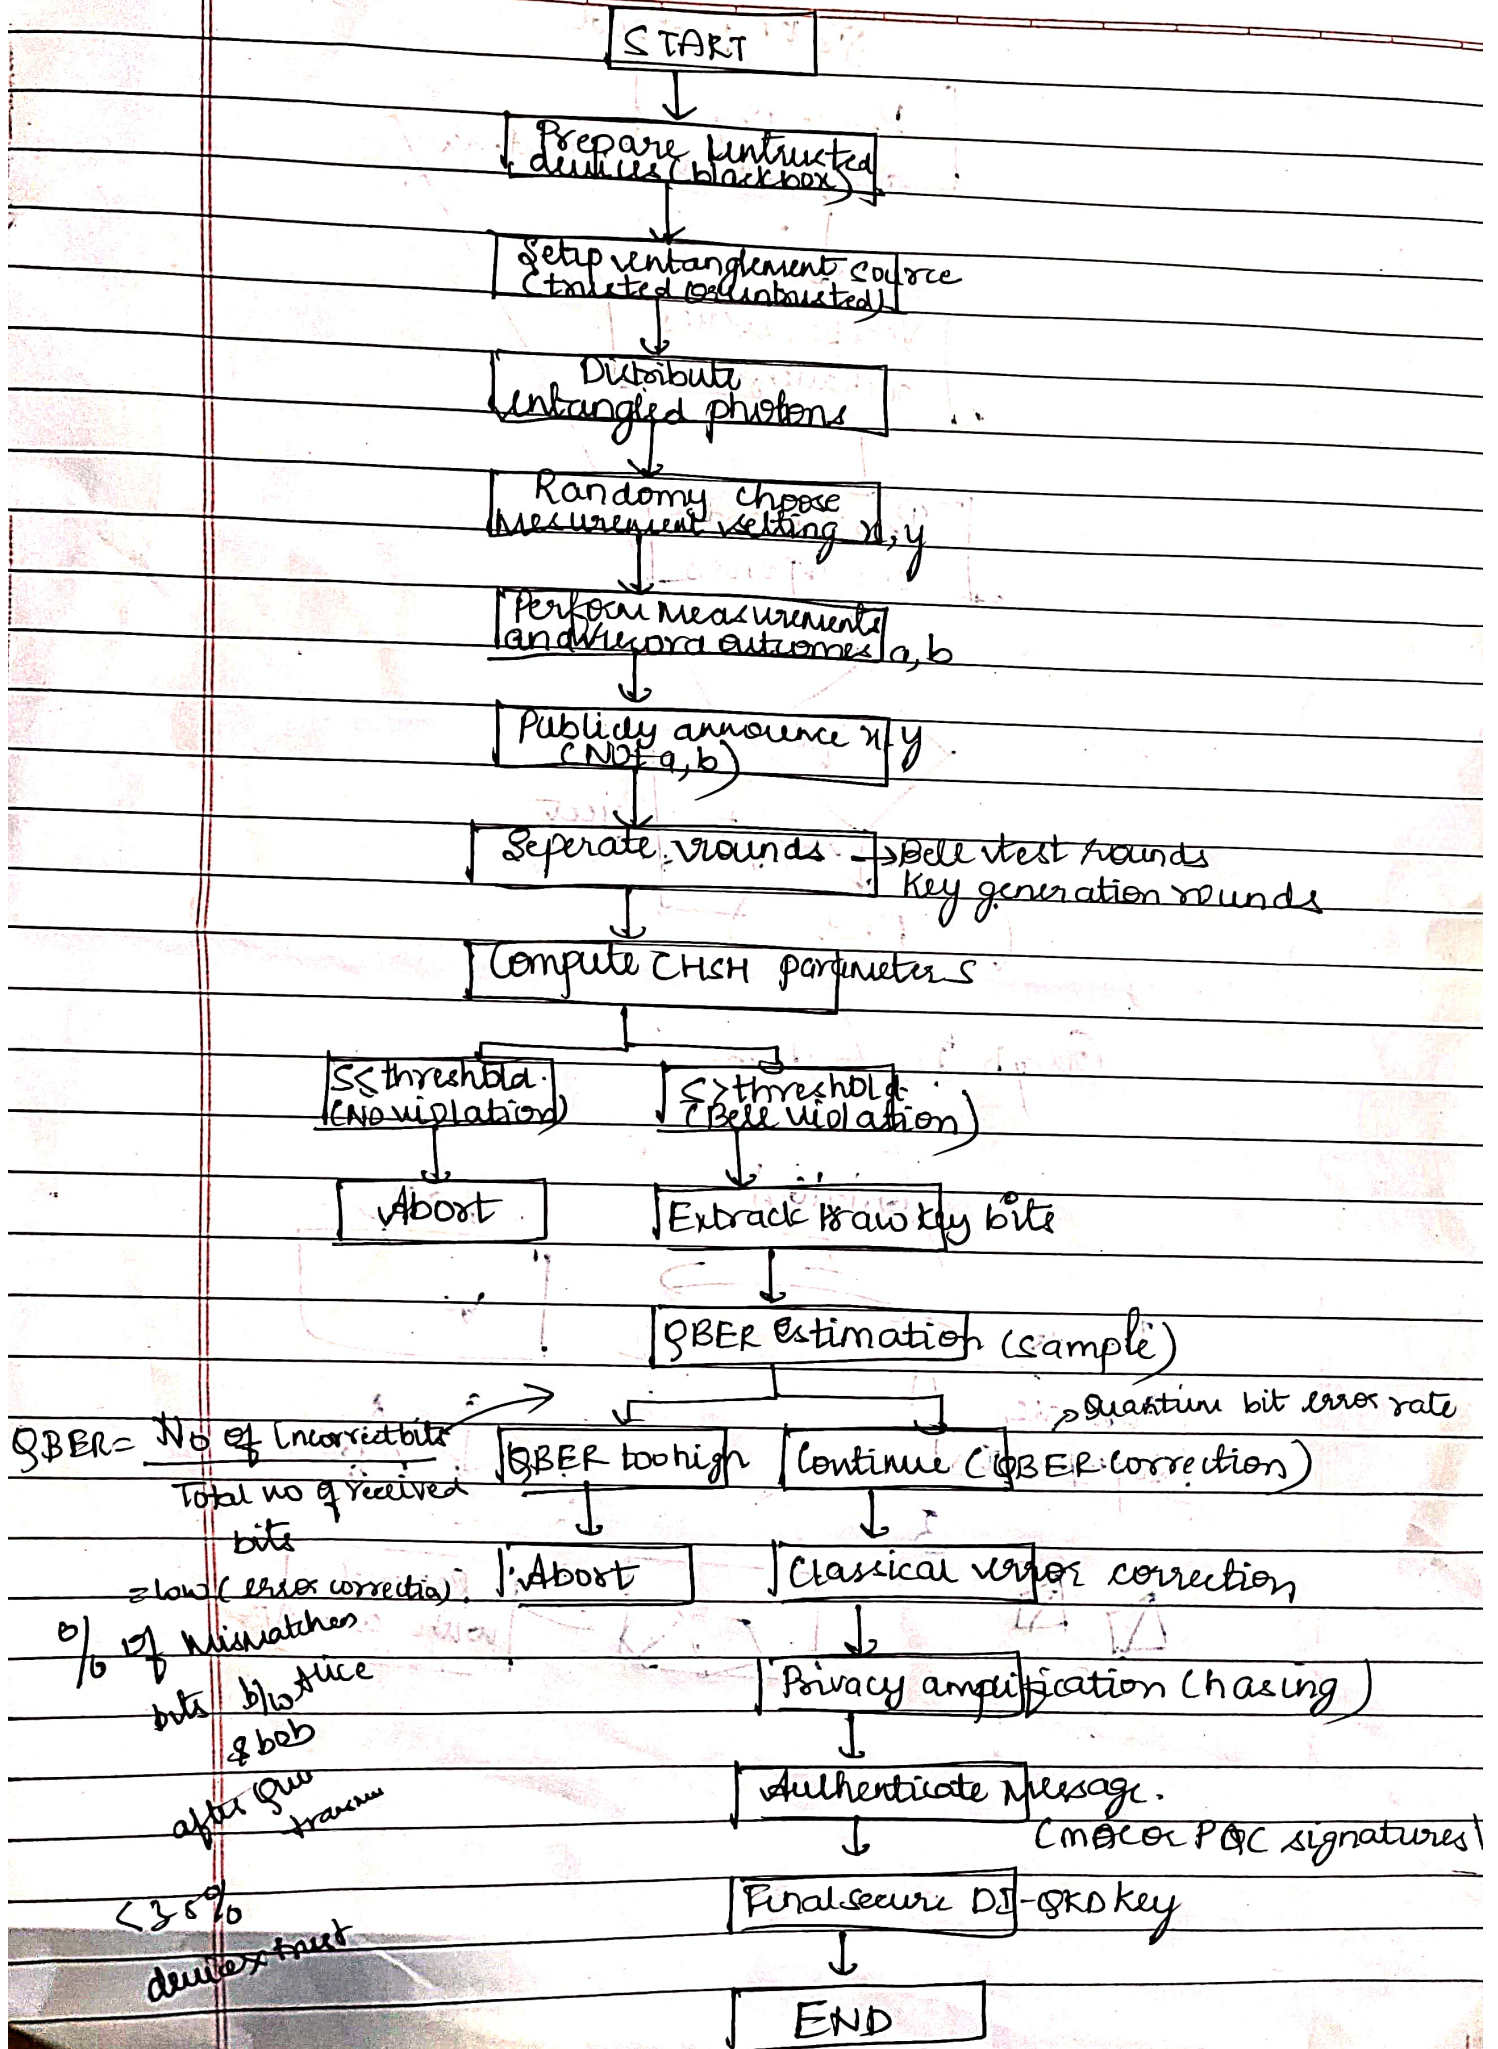 START
Prepare Untructed
devices (blackbox)
Setup entanglement source
(trusted or untrusted)
Distribute
entangled photons
Randomy choose
Mesurement setting x, y
Perform measurements
and record outcomes a, b
Publicly announce x, y
(Not a, b)
Seperate rounds → Bell test rounds
Key generation rounds
Compute CHSH parameter S
S≤threshold
(No violation)
S>threshold
(Bell violation)
Abort
Extrack raw key bits
QBER Estimation (sample)
→ Quantum bit error rate
QBER = No of Incorrect bits
Total no of received
bits
QBER too high
Continue (QBER correction)
= low (error correctio)
Abort
Classical error correction
% of Mismatches
bits b/w Alice
& bob
after
Privacy amplification (hasing)
Authenticate Message.
(MAC or PQC signatures)
Final secure DI-QKD key
trust
END